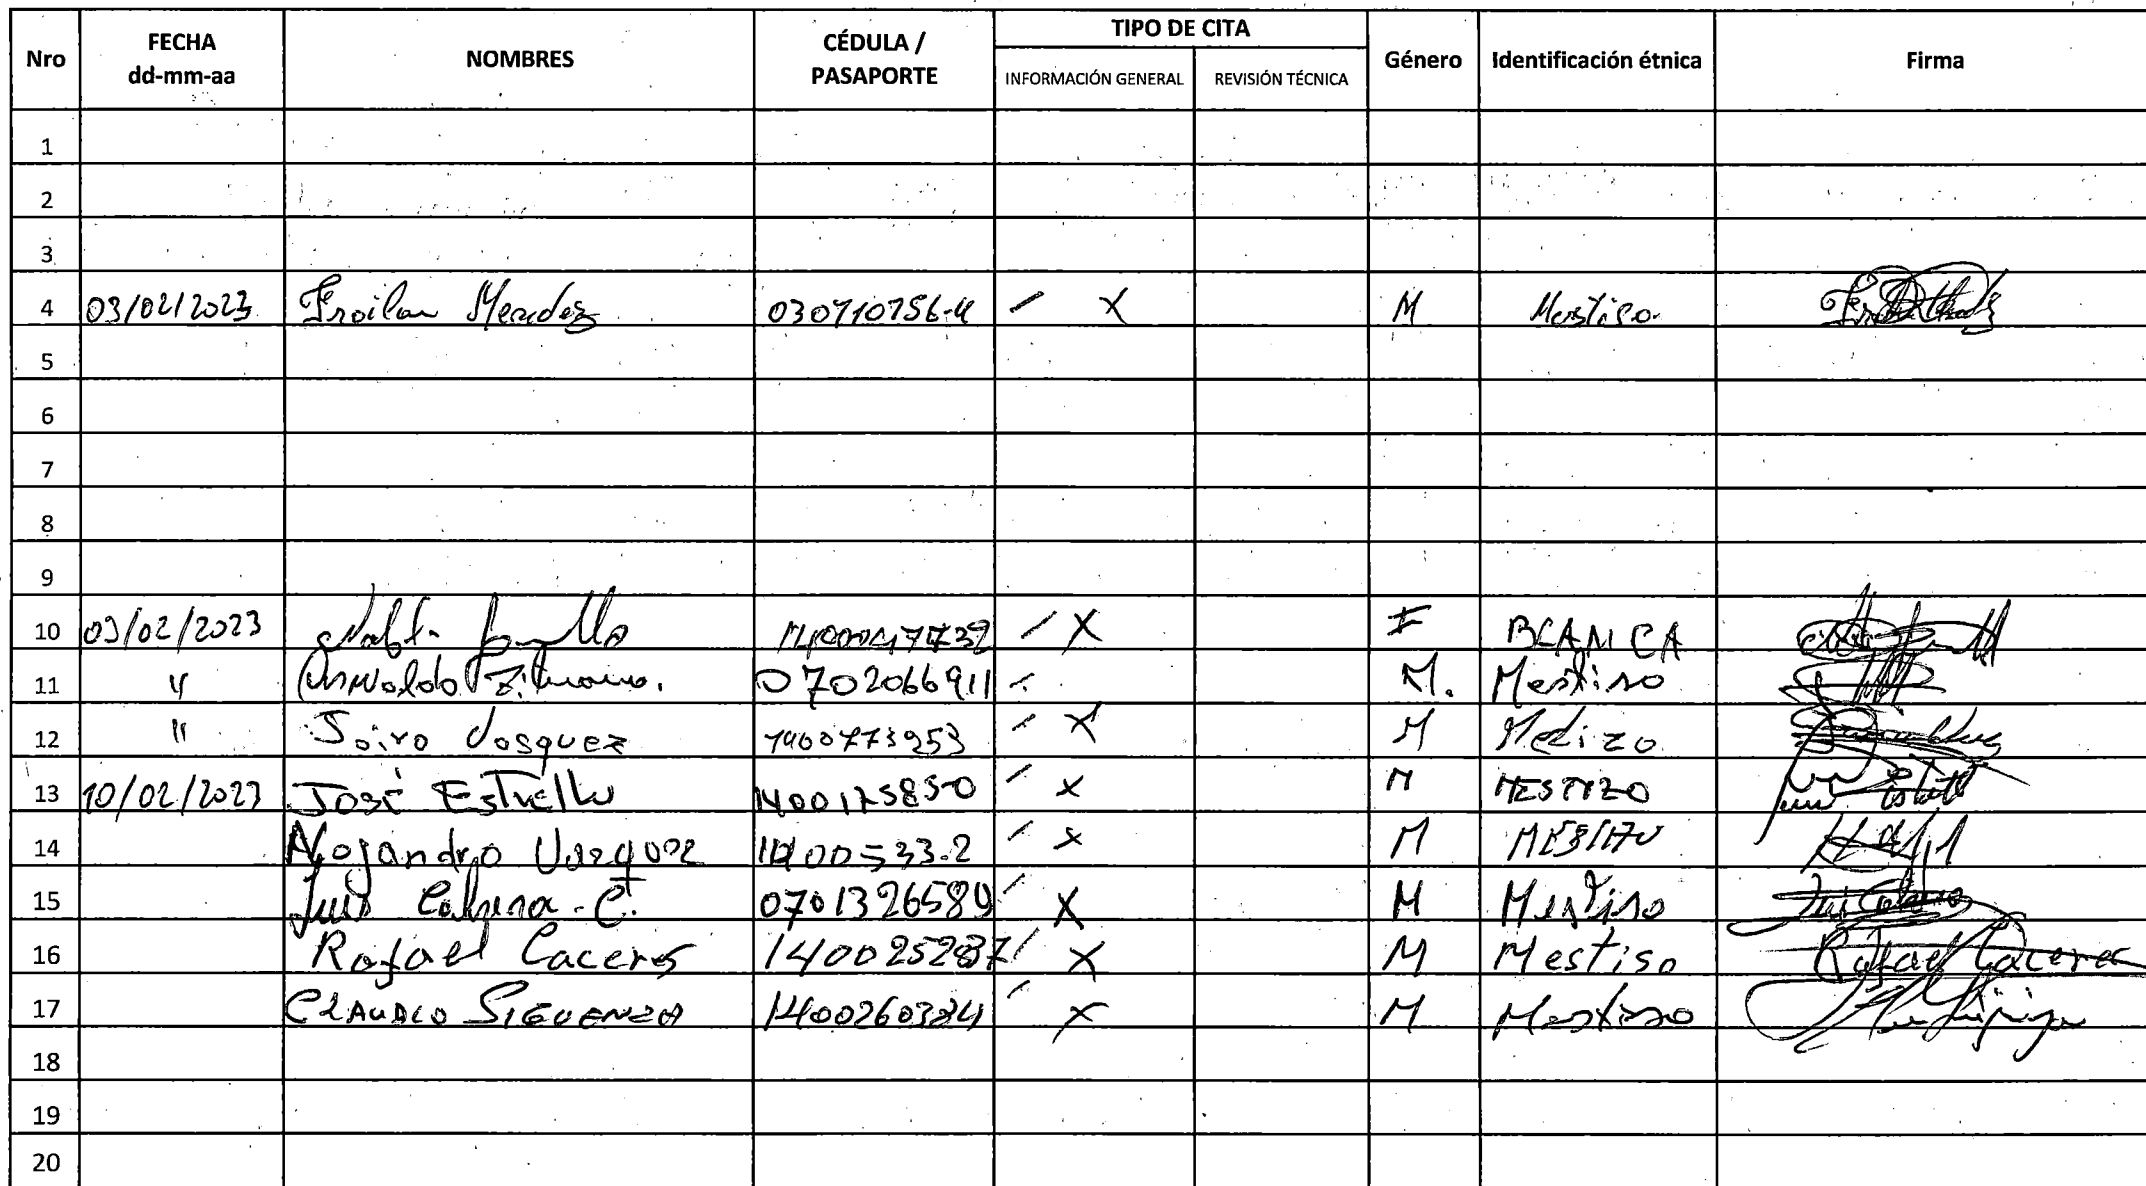 Nro FECHA dd-mm-aa NOMBRES CÉDULA / PASAPORTE TIPO DE CITA INFORMACIÓN GENERAL REVISIÓN TÉCNICA Género Identificación étnica Firma
1
2
3
4 03/02/2023 Froilan Mendez 030710756-4 / X M Mestiso.
5
6
7
8
9
10 09/02/2023 / X F BLANCA
11 " 0702066911 / M. Mestiso
12 " Jairo Vasquez 1400773953 / X M Medizo
13 10/02/2023 José Estrella 1400125850 / X M MESTIZO
14 Alejandro Vazquez 1400533-2 / X M MESTIZO
15 Luis C. 0701326589 / X M Mestiso
16 Rafael Caceres 1400252837 / X M Mestiso Rafael Caceres
17 CLAUDIO SIGUENZA 1400260384 / X M Mestiso
18
19
20